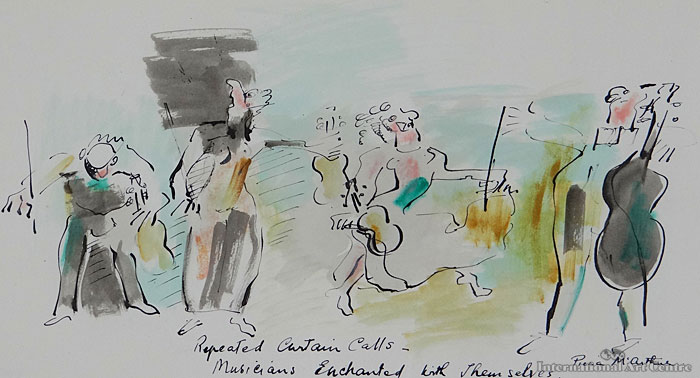 Repeated Curtain Calls -
Musicians Enchanted with Themselves
Piera McArthur
International Art Centre